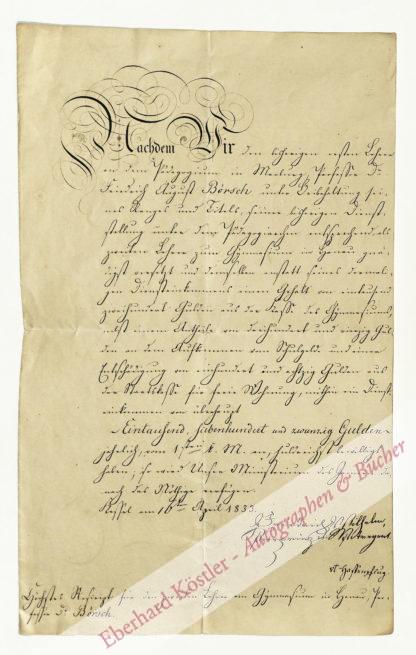 Nachdem Wir den bisherigen ersten Lehrer
an dem Pädagogium in Marburg, Professor Dr.
Friedrich August Börsch unter Beibehaltung sei-
nes Ranges und Titels, seiner bisherigen Dienst-
stellung unter den Pädagogiarchen entsprechend, als
zweiten Lehrer zum Gymnasium in Hanau gnä-
digst versetzt und demselben anstatt seines dermali-
gen Diensteinkommens einen Gehalt von eintausend
Gulden aus der Kasse des Gymnasiums,
nebst einem Antheile von dreihundert und vierzig Gul-
den an dem Aufkommen vom Schulgelde und einer
Entschädigung von einhundert und achtzig Gulden aus
der Staatskasse für freie Wohnung, mithin ein Dienst-
einkommen von überhaupt
Eintausend, siebenhundert und zwanzig Gulden
jährlich, vom 1sten d. M. an, huldreichst bewilligt
haben, so wird Unser Ministerium des Innern da-
nach das Nöthige verfügen.
Kassel am 16ten April 1833.
Friedrich Wilhelm,
Kurprinz u. Mitregent.
vt Hassenpflug
Höchstes Rescript für den zweiten Lehrer am Gymnasium in Hanau, Pro-
fessor Dr. Börsch.
Eberhard Köstler - Autographen & Bücher